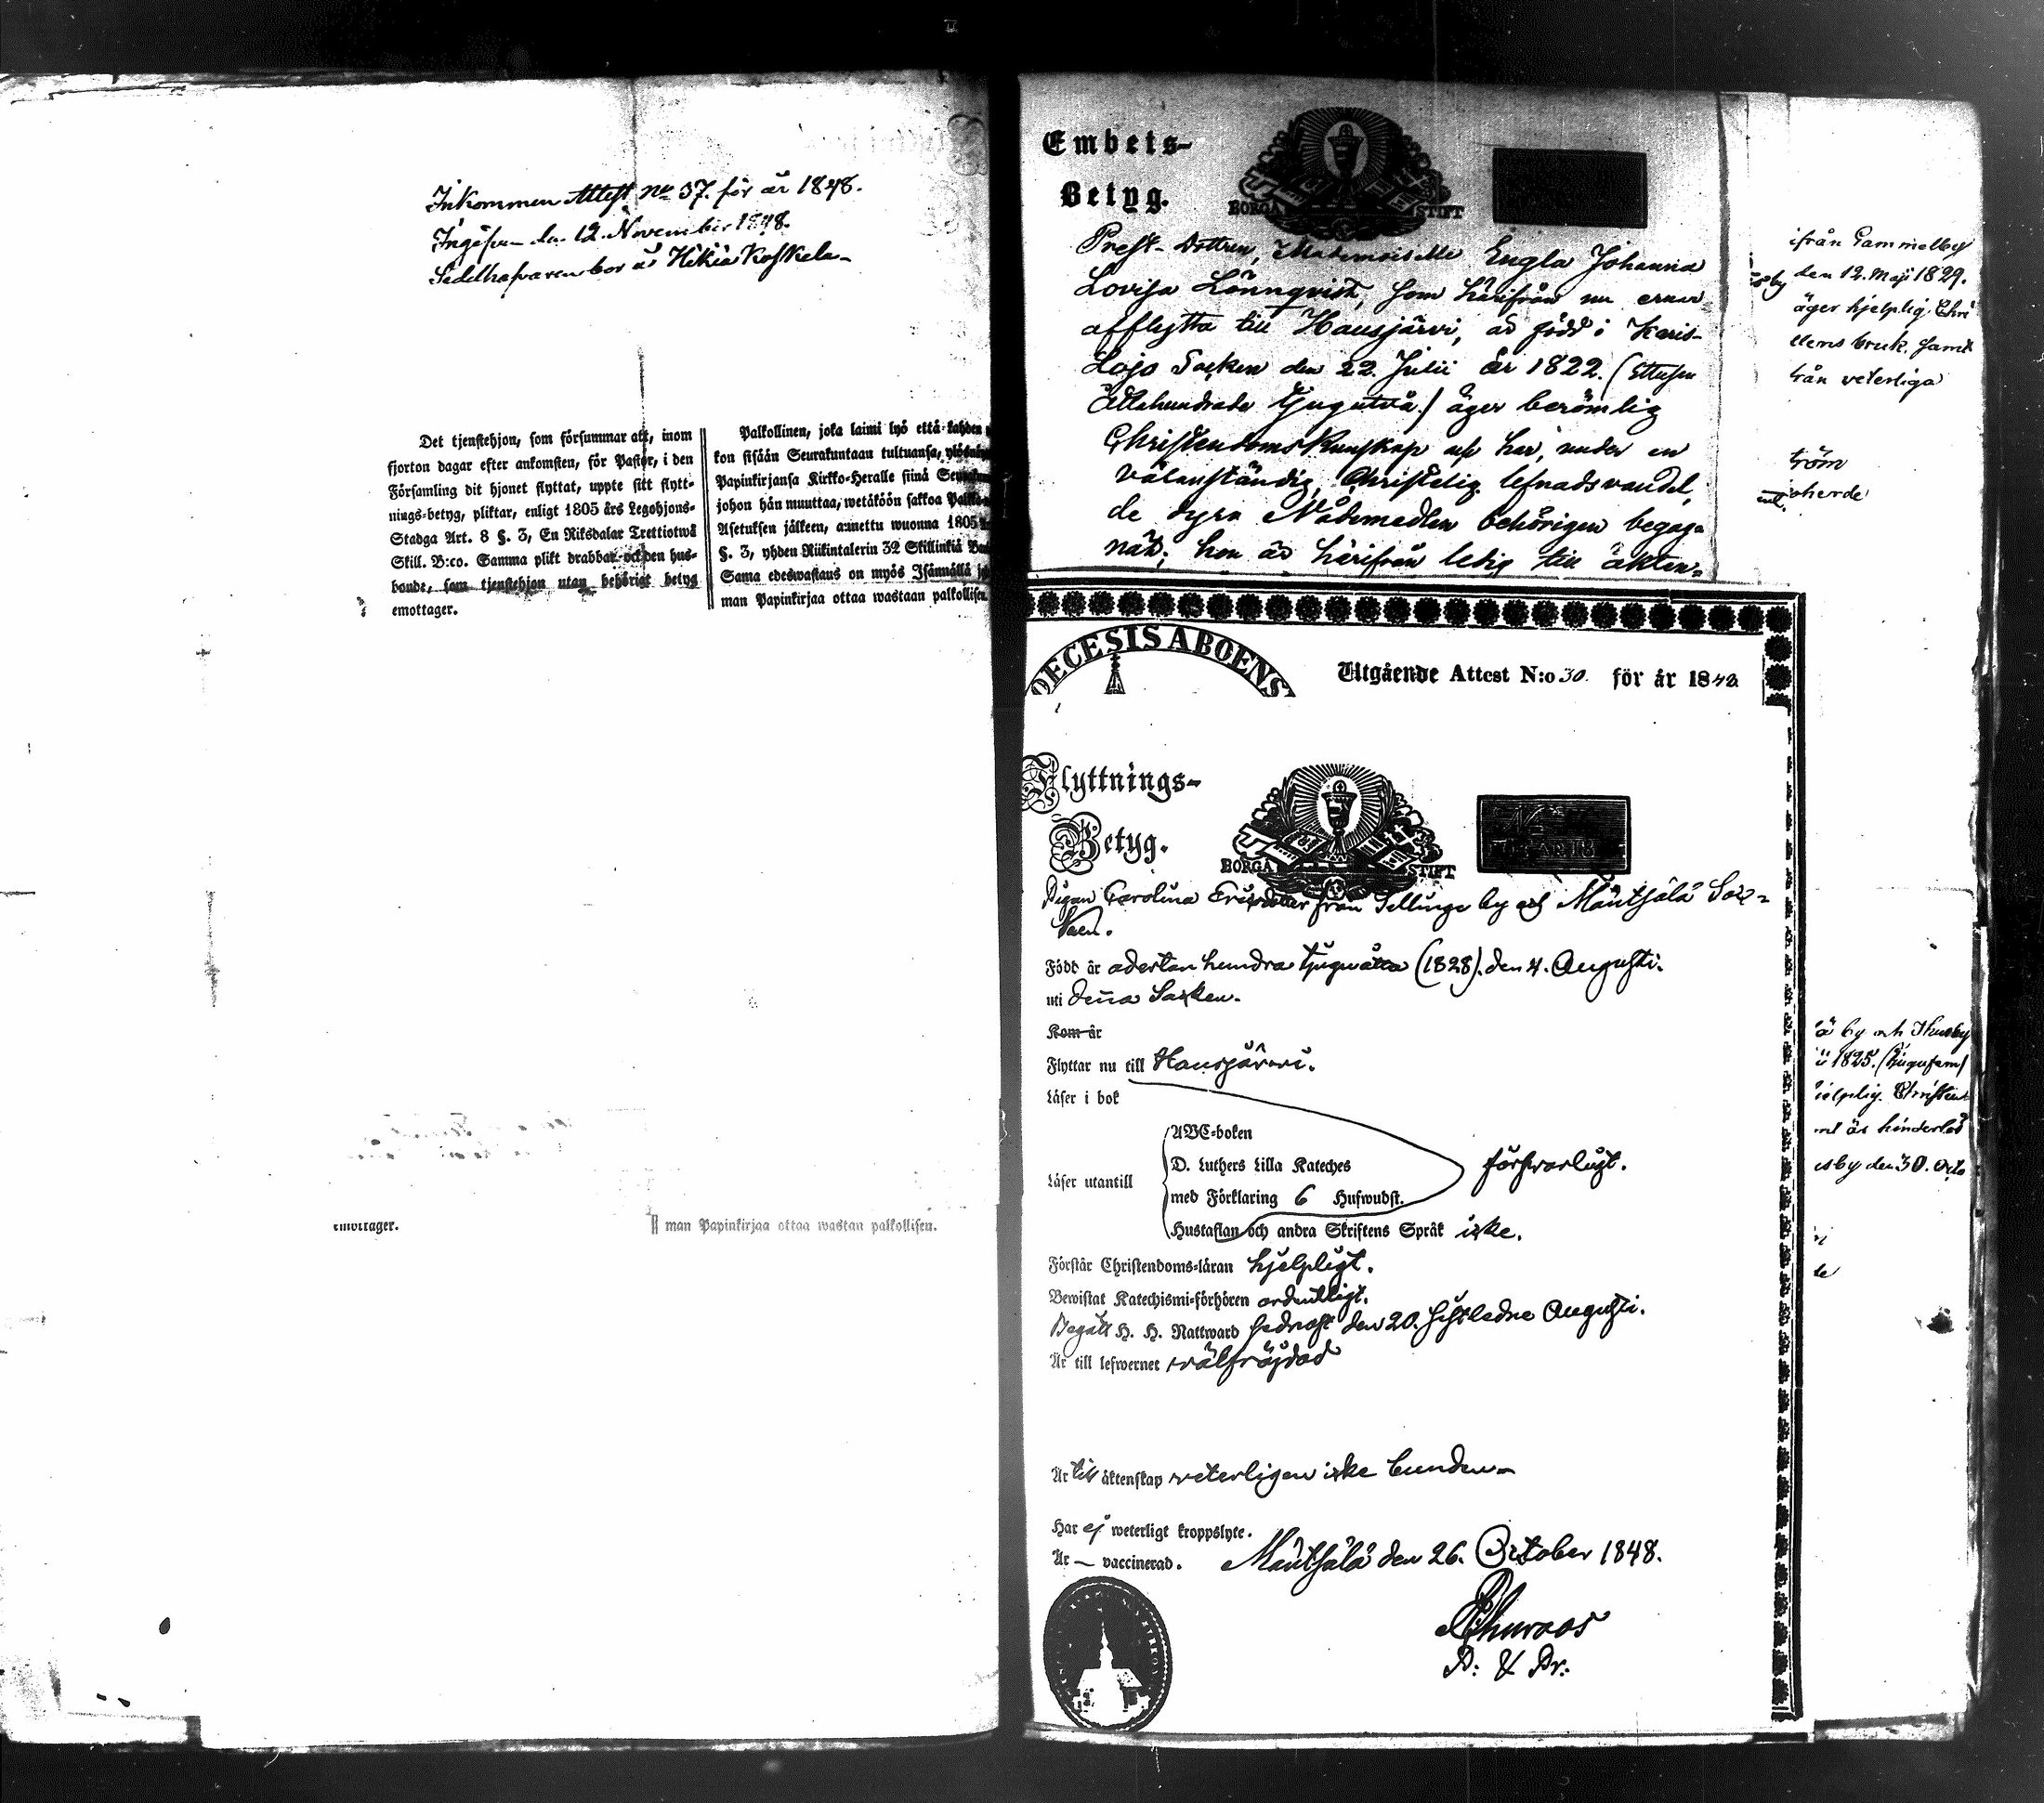 Inkommen Attest No 37. för år 1848.
Ingifven den 12 November 1848.
Sedelhafvaren bor å Hikiä Koskela
Det tjenstehjon, som försummar att, inom
fjorton dagar efter ankomsten, för Pastor, i den
Församling dit hjonet flyttat, uppte sitt flytt-
nings-betyg, pliktar, enligt 1805 års Legohjons-
Stadga Art. 8 §. 3, En Riksdalar Trettiotwå
Skill. B:co. Samma plikt drabbar ock den hus-
bonde, som tjenstehjon utan behörigt betyg
emottager.
Palkollinen, joka laimi lyö että kahden
kon sisään Seurakuntaan tultuansa, ylös
Papinkirjansa Kirkko-Heralle siinä Seu
johon hän muuttaa, wetäköön sakkoa Palko
Asetuksen jälkeen, annettu wuonna 1805
§. 3, yhden Riikintalerin 32 Skillinkiä Ban
Sama edeswastaus on myös Isännällä j
man Papinkirjaa ottaa wastaan palkollisen.
emottager.
man Papinkirjaa ottaa wastan palkollisen.
Embets-
Betyg.
BORGÅ STIFT
Prest-Dottren, Mademoiselle Engla Johanna
Lovisa Lönnqvist, som härifrån nu ernar
afflytta till Hausjärvi, är född i Karis-
Lojo Socken den 22. Julii år 1822. (Ettusen
Åttahundrade tjugutvå.) äger berömlig
Christendomskunskap och har, under en
välanständig, Christelig lefnadsvandel,
de dyra Nådemedlen behörigen begag-
nat; hon är härifrån ledig till äkten-
ifrån Gammelby
den 12. Maji 1829.
äger hjelplig Chri
dens bruk, samt
från veterliga
tröm
oherde
OECESIS ABOENS
Utgående Attest N:o 30. för år 1848
Flyttnings-
Betyg.
BORGÅ STIFT
Pigan Carolina Ericsdotter från Sellinge by och Mäntsälä Soc-
ken.
Född år adertonhundra tjuguåtta (1828). den 4. Augusti.
uti denna Socken.
Kom år
Flyttar nu till Hausjärvi.
Läser i bok
Läser utantill
ABC-boken
D. Luthers Lilla Kateches
med Förklaring 6 Hufwudst.
försvarligt.
Hustaflan och andra Skriftens Språk icke.
Förstår Christendoms-läran hjelpligt.
Bewistat Katechismi-förhören ordentligt.
Begått H. H. Nattward sednast den 20. sistledne Augusti.
Är till lefwernet välfräjdad
Är till äktenskap veterligen icke bunden
Har ej weterligt kroppslyte.
Är — vaccinerad. Mäntsälä den 26. October 1848.
å by och Thusby
1825. (tjugufem)
hjelplig. Christen
den 30. Octo